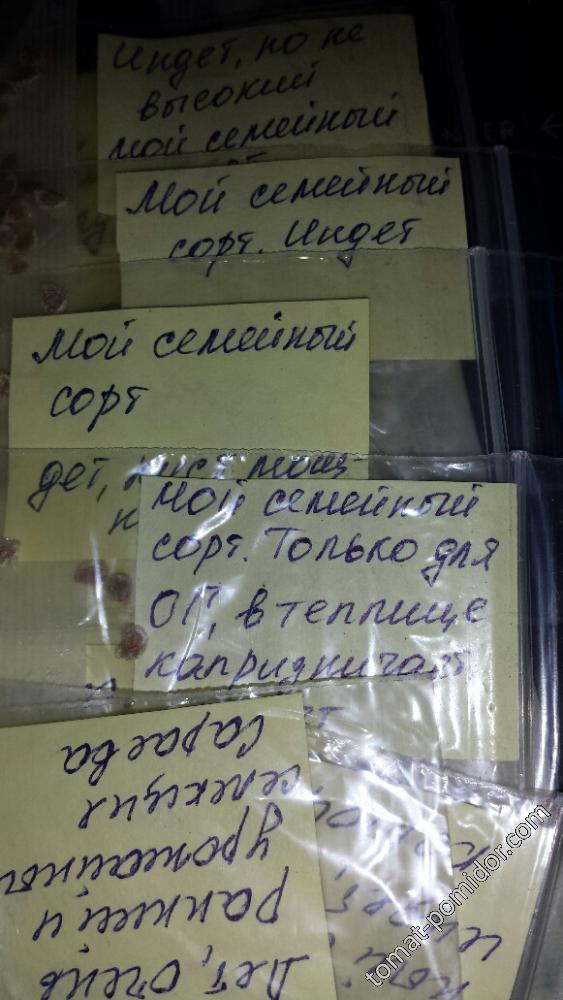 Индет, но не
высокий
мой семейный
Мой семейный
сорт. Индет
Мой семейный
сорт
дет,
Мой семейный
сорт. Только для
ОГ, в теплице
капризничает
Дет, очень
ранний и
урожайный
селекция
Сараева
tomat-pomidor.com